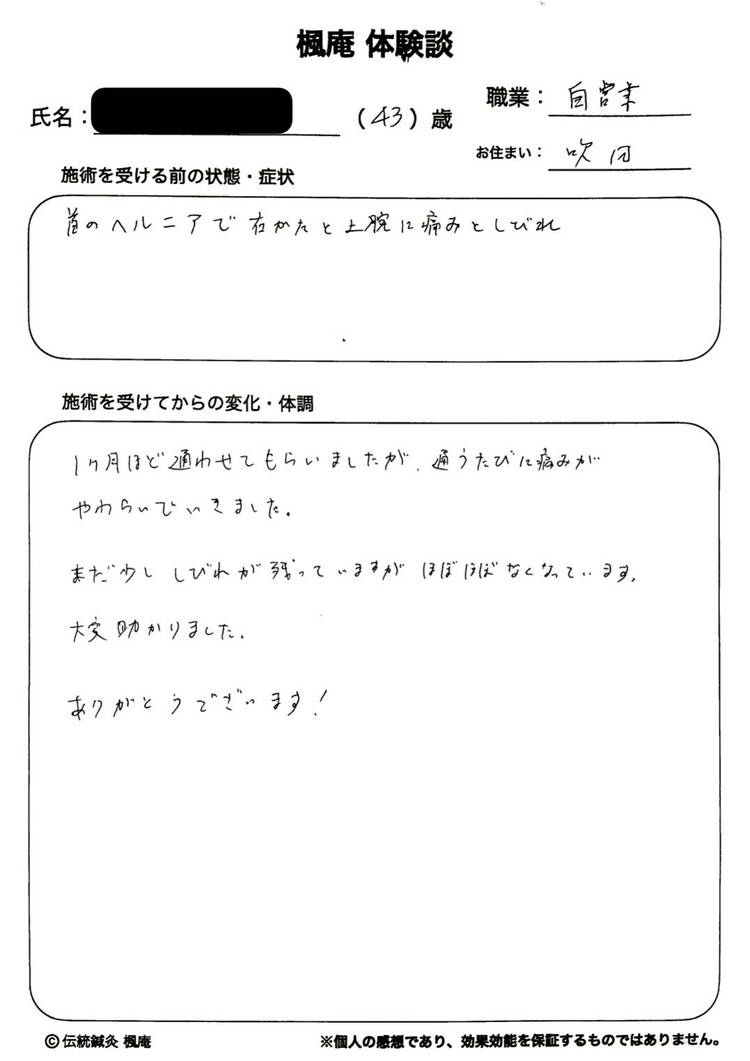 楓庵 体験談
氏名：
（43）歳
職業：自営業
お住まい：吹田
施術を受ける前の状態・症状
首のヘルニアで右かたと上腕に痛みとしびれ
施術を受けてからの変化・体調
1ヶ月ほど通わせてもらいましたが、通うたびに痛みが
やわらいでいきました。
まだ少ししびれが残っていますがほぼほぼなくなっています。
大変助かりました。
ありがとうでざいます！
©伝統鍼灸 楓庵
※個人の感想であり、効果効能を保証するものではありません。